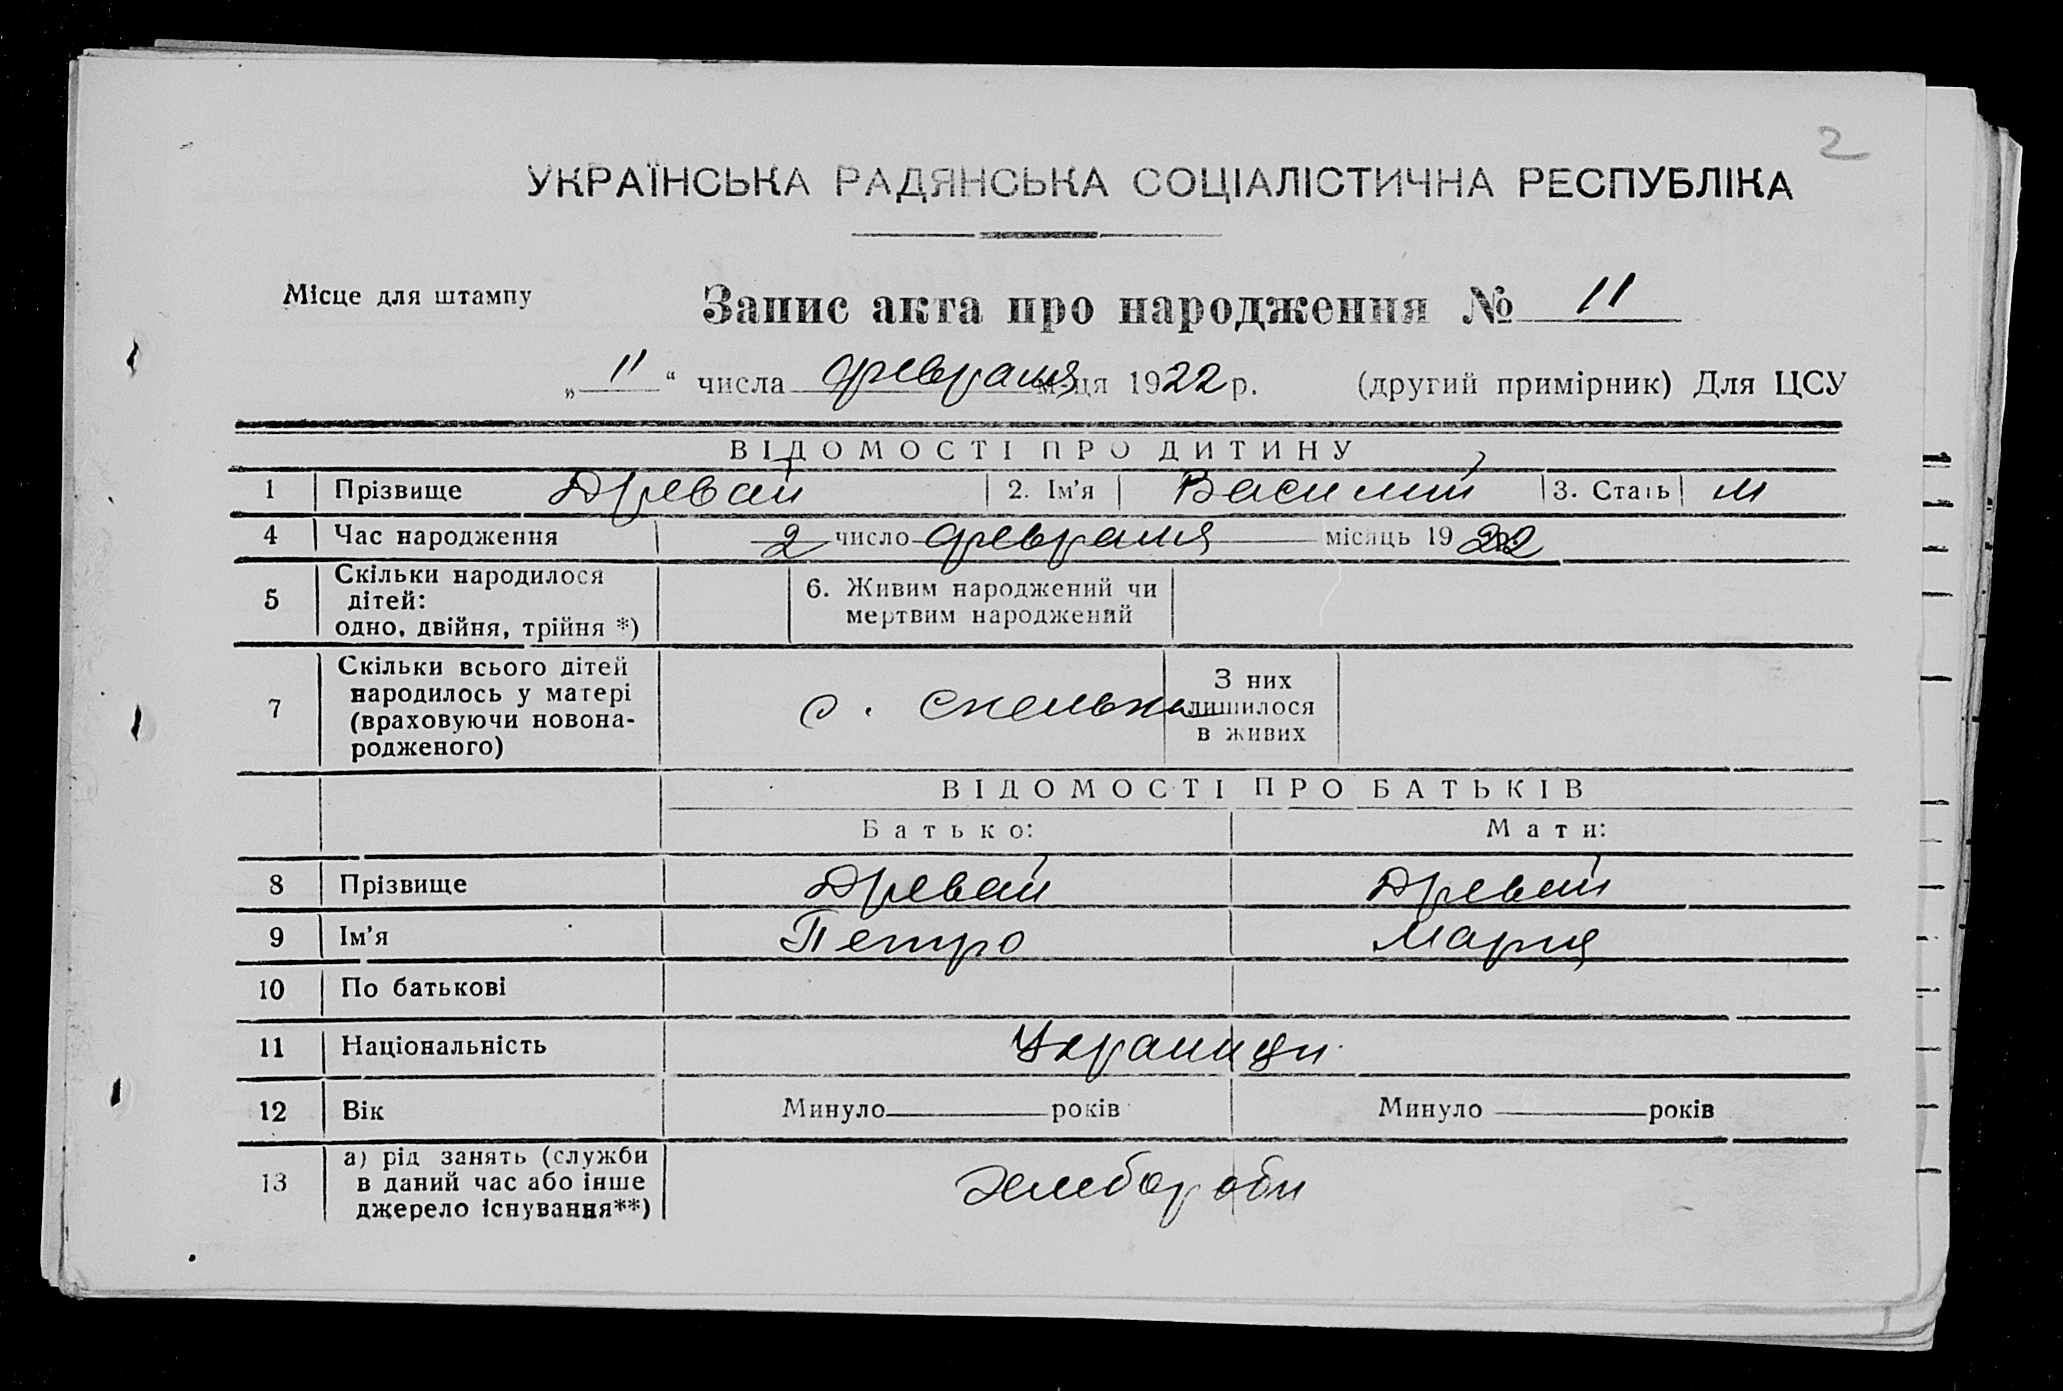 2
УКРАЇНСЬКА РАДЯНСЬКА СОЦІАЛІСТИЧНА РЕСПУБЛІКА
Місце для штампу
Запис акта про народження № 11
„ 11 “ числа февраля м-ця 1922 р. (другий примірник) Для ЦСУ
ВІДОМОСТІ ПРО ДИТИНУ
1 Прізвище Древай 2. Ім’я Василий 3. Стать м
4 Час народження 2 число февраля місяць 1922
5 Скільки народилося дітей: одно, двійня, трійня *) 6. Живим народжений чи мертвим народжений
7 Скільки всього дітей народилось у матері (враховуючи новонародженого) с. Скельки З них лишилося в живих
ВІДОМОСТІ ПРО БАТЬКІВ
Батько: Мати:
8 Прізвище Древай Древай
9 Ім’я Петро Мария
10 По батькові
11 Національність Украинци
12 Вік Минуло років Минуло років
13 а) рід занять (служби в даний час або інше джерело існування**) Хлебороби